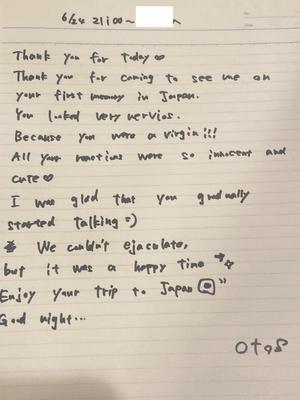 6/24 21:00~
Thank you for today♡
Thank you for coming to see me on
your first memory in Japan.
You looked very nervios.
Because you were a virgin!!!
All your reactions were so innocent and
cute♡
I was glad that you gradually
started talking=)
We couldn't ejaculate,
but it was a happy time
Enjoy your trip to Japan
Good night...